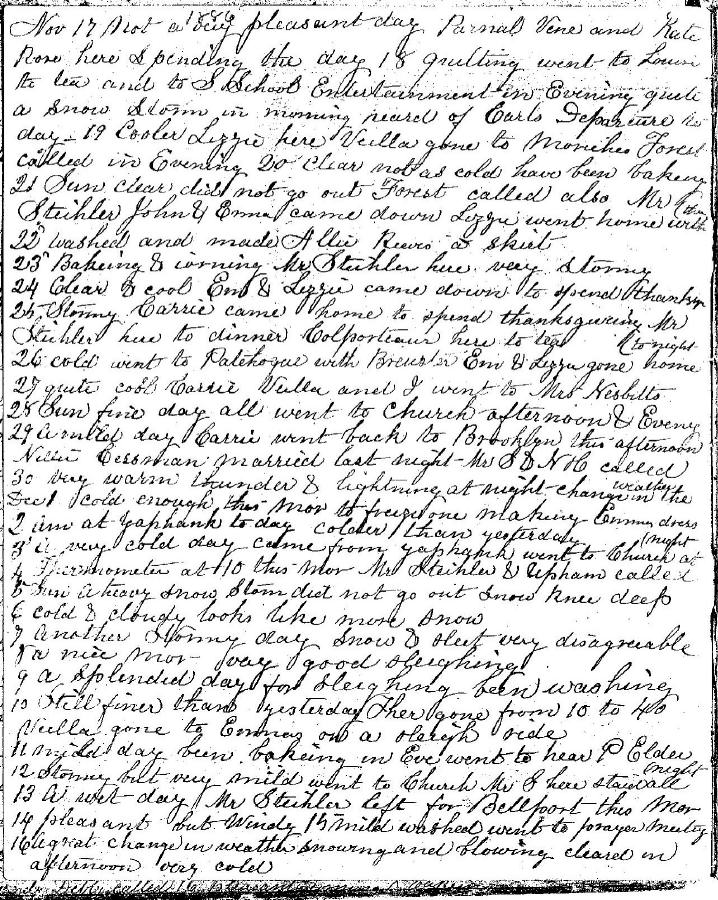 1886
Nov 17 Not a very pleasant day Parnal Vene and Kate
Rose here spending the day 18 quilting went to Louise
to tea and to S School Entertainment in Evening quite
a snow storm in morning heard of Earls Departure to
day - 19 Cooler Lizzie here Veulla gone to Moriches Forest
called in Evening 20 Clear not as cold have been bakeing
21 Sun clear did not go out Forest called also Mr
Steihler John & Emma came down Lizzie went home with them
22 washed and made Allie Reeves a skirt
23 Bakeing & ironing Mr Steihler here very stormy
24 Clear & cool Em & Lizzie came down to spend thanksgn
25 Stormy Carrie came home to spend thanksgiveing Mr
Steihler here to dinner Colporteaur here to tea & to night
26 cold went to Patchogue with Brewster Em & Lizzie gone home
27 quite cool Carrie Veulla and I went to Mrs Nesbitts
28 Sun fine day all went to church afternoon & Eveng
29 A mild day Carrie went back to Brooklyn this afternoon
Nillie married last night Mr S D N H called
30 very warm thunder & lightning at night change in the weather
Dec 1 cold enough this Mor to freeze one making Emmas dress
2 am at Yaphank to day colder than yesterday
3 A very cold day came from yaphank went to Church at night
4 Thermometer at 10 this Mor Mr Steihler & Upham called
5 Sun A heavy snow Storm did not go out snow knee deep
6 cold & cloudy looks like more snow
7 Another Stormy day snow & sleet very disagreeable
8 a nice mor very good sleighing
9 a splendid day for sleighing been washing
10 Still finer than yesterday Ther gone from 10 to 40
Veulla gone to Emmas on a sleigh ride
11 mild day been bakeing in Eve went to hear P Elder
12 Stormy but very mild went to Church Mr S here staid all night
13 A wet day Mr Steihler left for Bellport this Mor
14 pleasant but Windy 15 mild washed went to prayer meeting
16 A great change in weather snowing and blowing cleard in
afternoon very cold